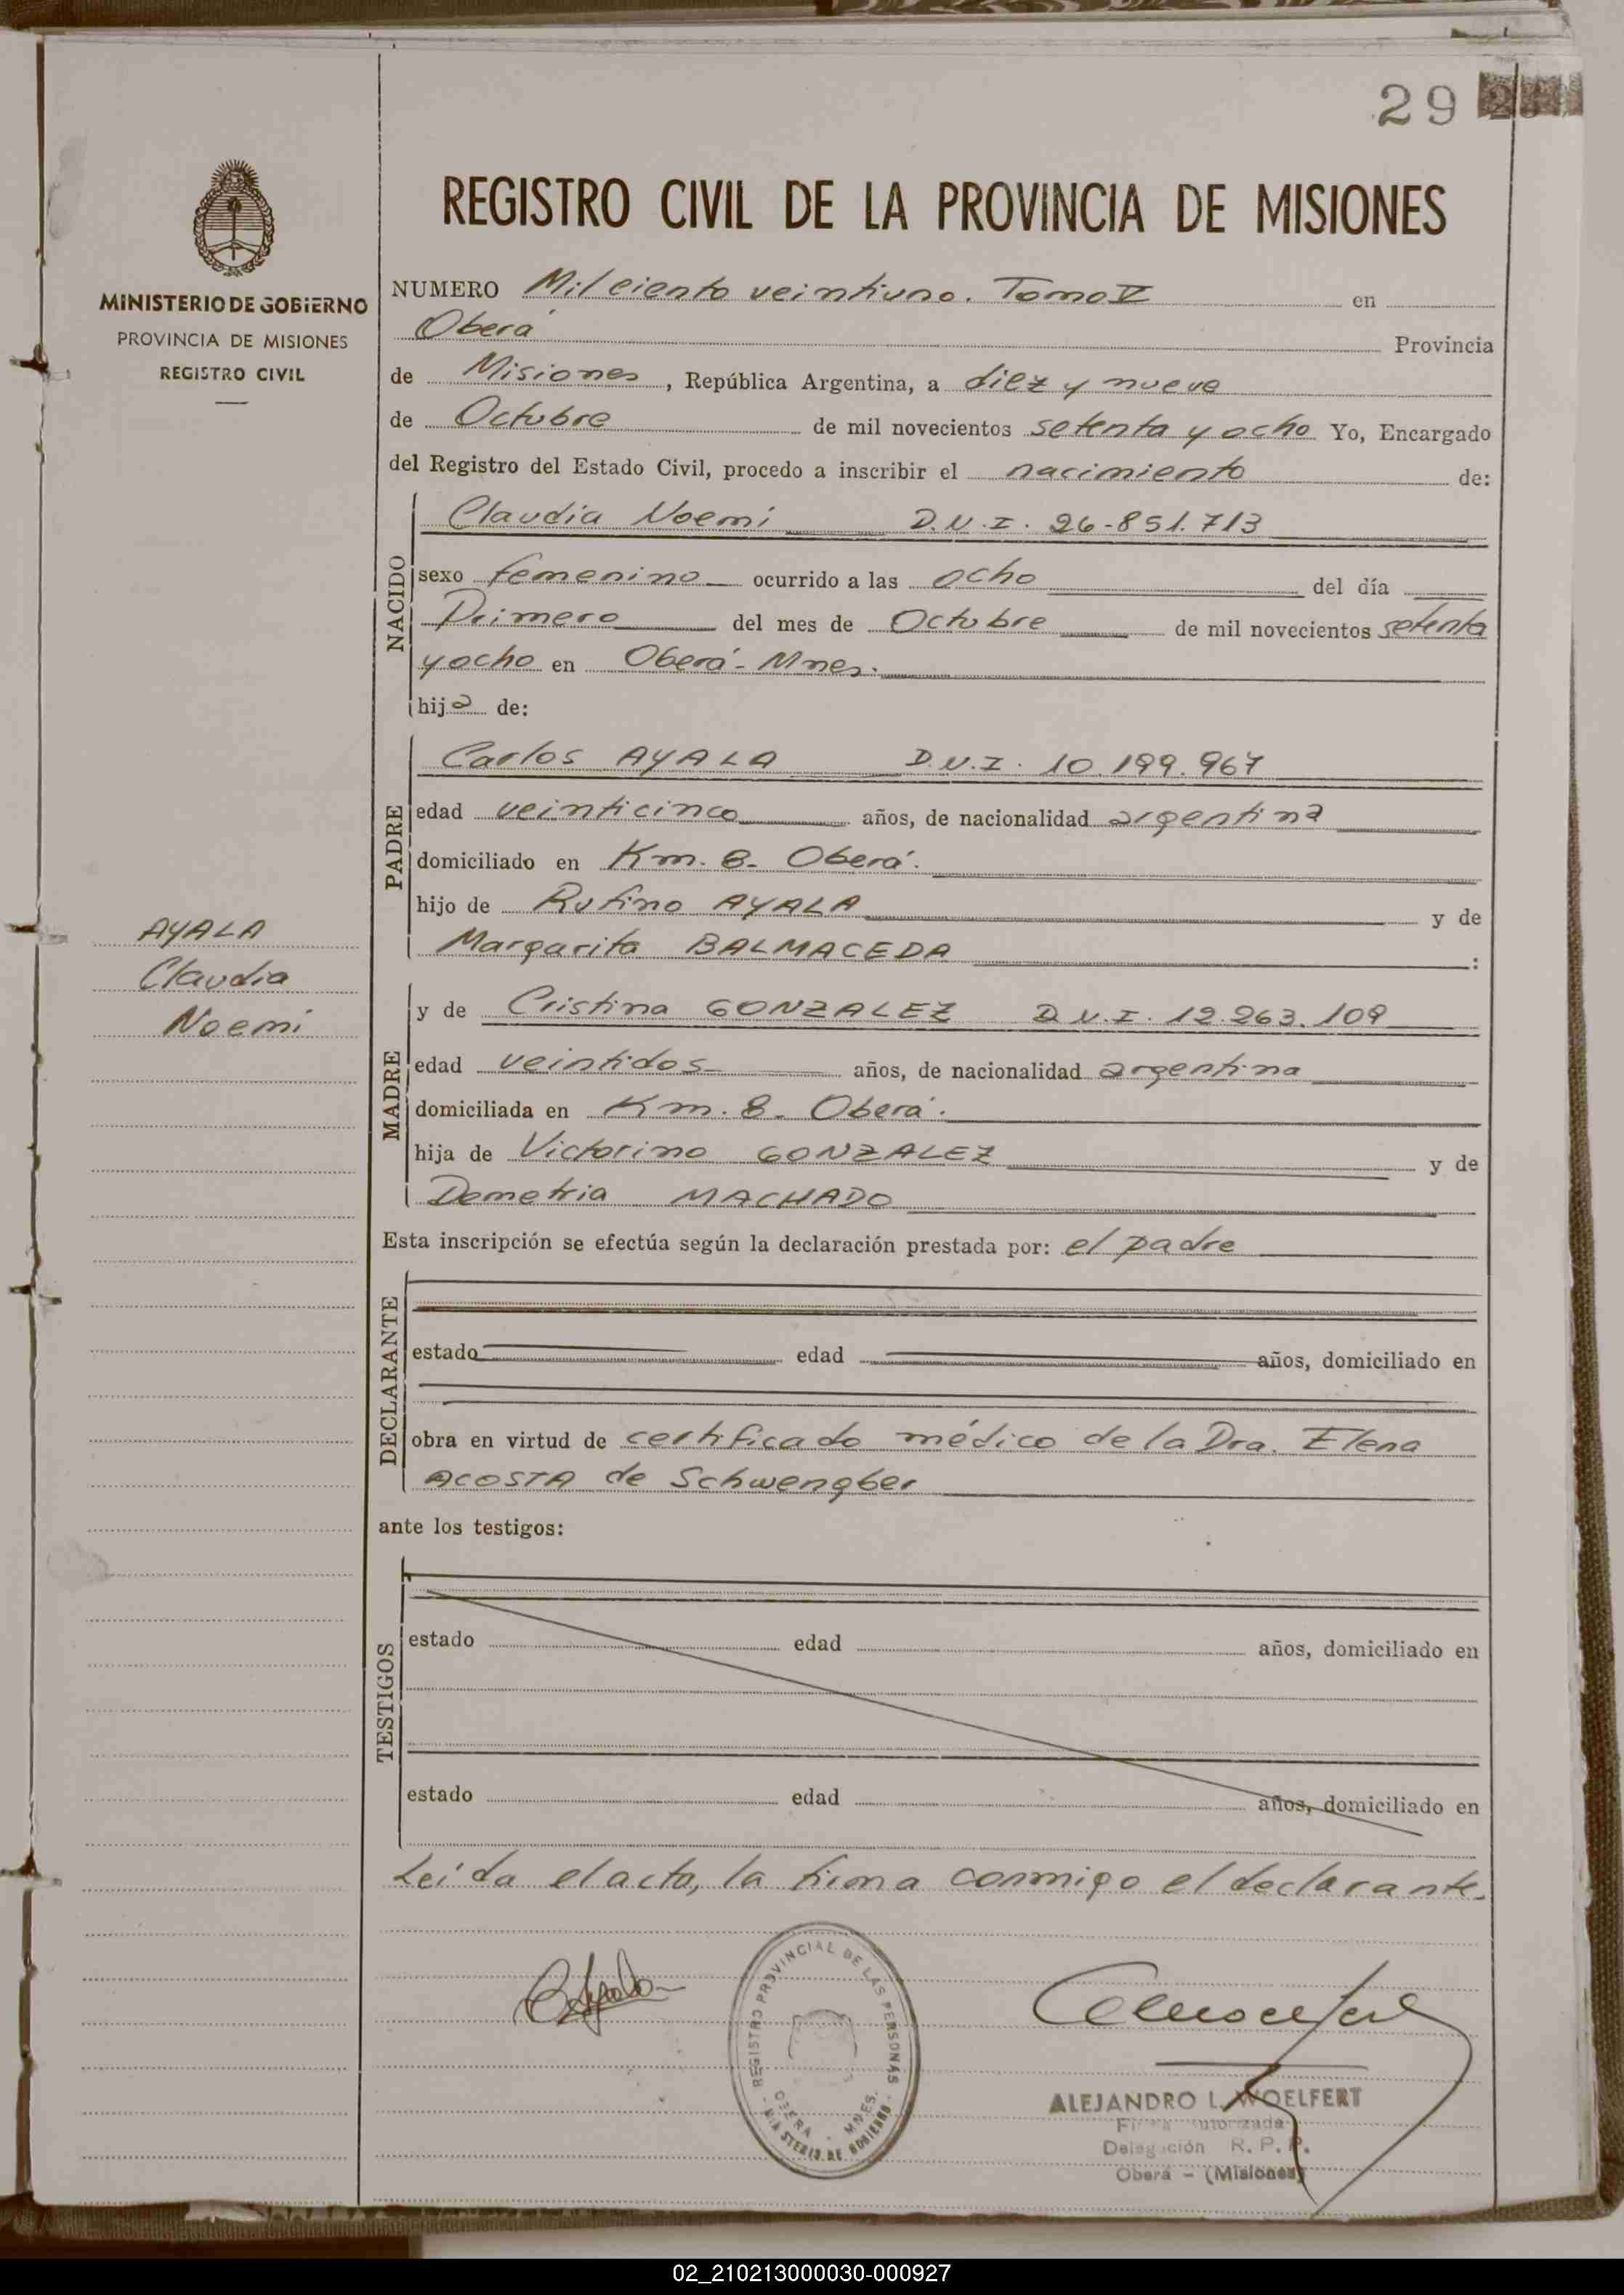 29
REGISTRO CIVIL DE LA PROVINCIA DE MISIONES
MINISTERIO DE GOBIERNO
PROVINCIA DE MISIONES
REGISTRO CIVIL
NUMERO Mil ciento veintiuno. Tomo V en
Oberá Provincia
de Misiones, República Argentina, a diez y nueve
de Octubre de mil novecientos setenta y ocho Yo, Encargado
del Registro del Estado Civil, procedo a inscribir el nacimiento de:
NACIDO
Claudia Noemi D.N.I. 26-851.713
sexo femenino ocurrido a las ocho del día
Primero del mes de Octubre de mil novecientos setenta
y ocho en Oberá - Mnes.
hija de:
PADRE
Carlos AYALA D.N.I. 10.199.967
edad veinticinco años, de nacionalidad argentina
domiciliado en Km. 8. Oberá.
hijo de Rufino AYALA y de
Margarita BALMACEDA :
AYALA
Claudia
Noemi
MADRE
y de Cristina GONZALEZ D.N.I. 12.263.109
edad veintidos años, de nacionalidad argentina
domiciliada en Km. 8. Oberá.
hija de Victorino GONZALEZ y de
Demetria MACHADO
Esta inscripción se efectúa según la declaración prestada por: el padre
DECLARANTE
estado edad años, domiciliado en
obra en virtud de certificado médico de la Dra. Elena
ACOSTA de Schwengber
ante los testigos:
TESTIGOS
estado edad años, domiciliado en
estado edad años, domiciliado en
Leída el acta, la firma conmigo el declarante.
C Ayala
REGISTRO PROVINCIAL DE LAS PERSONAS
OBERA - MNES.
MINISTERIO DE GOBIERNO
ALEJANDRO L. WOELFERT
Firma autorizada
Delegación R. P. P.
Oberá - (Misiones)
02_210213000030-000927